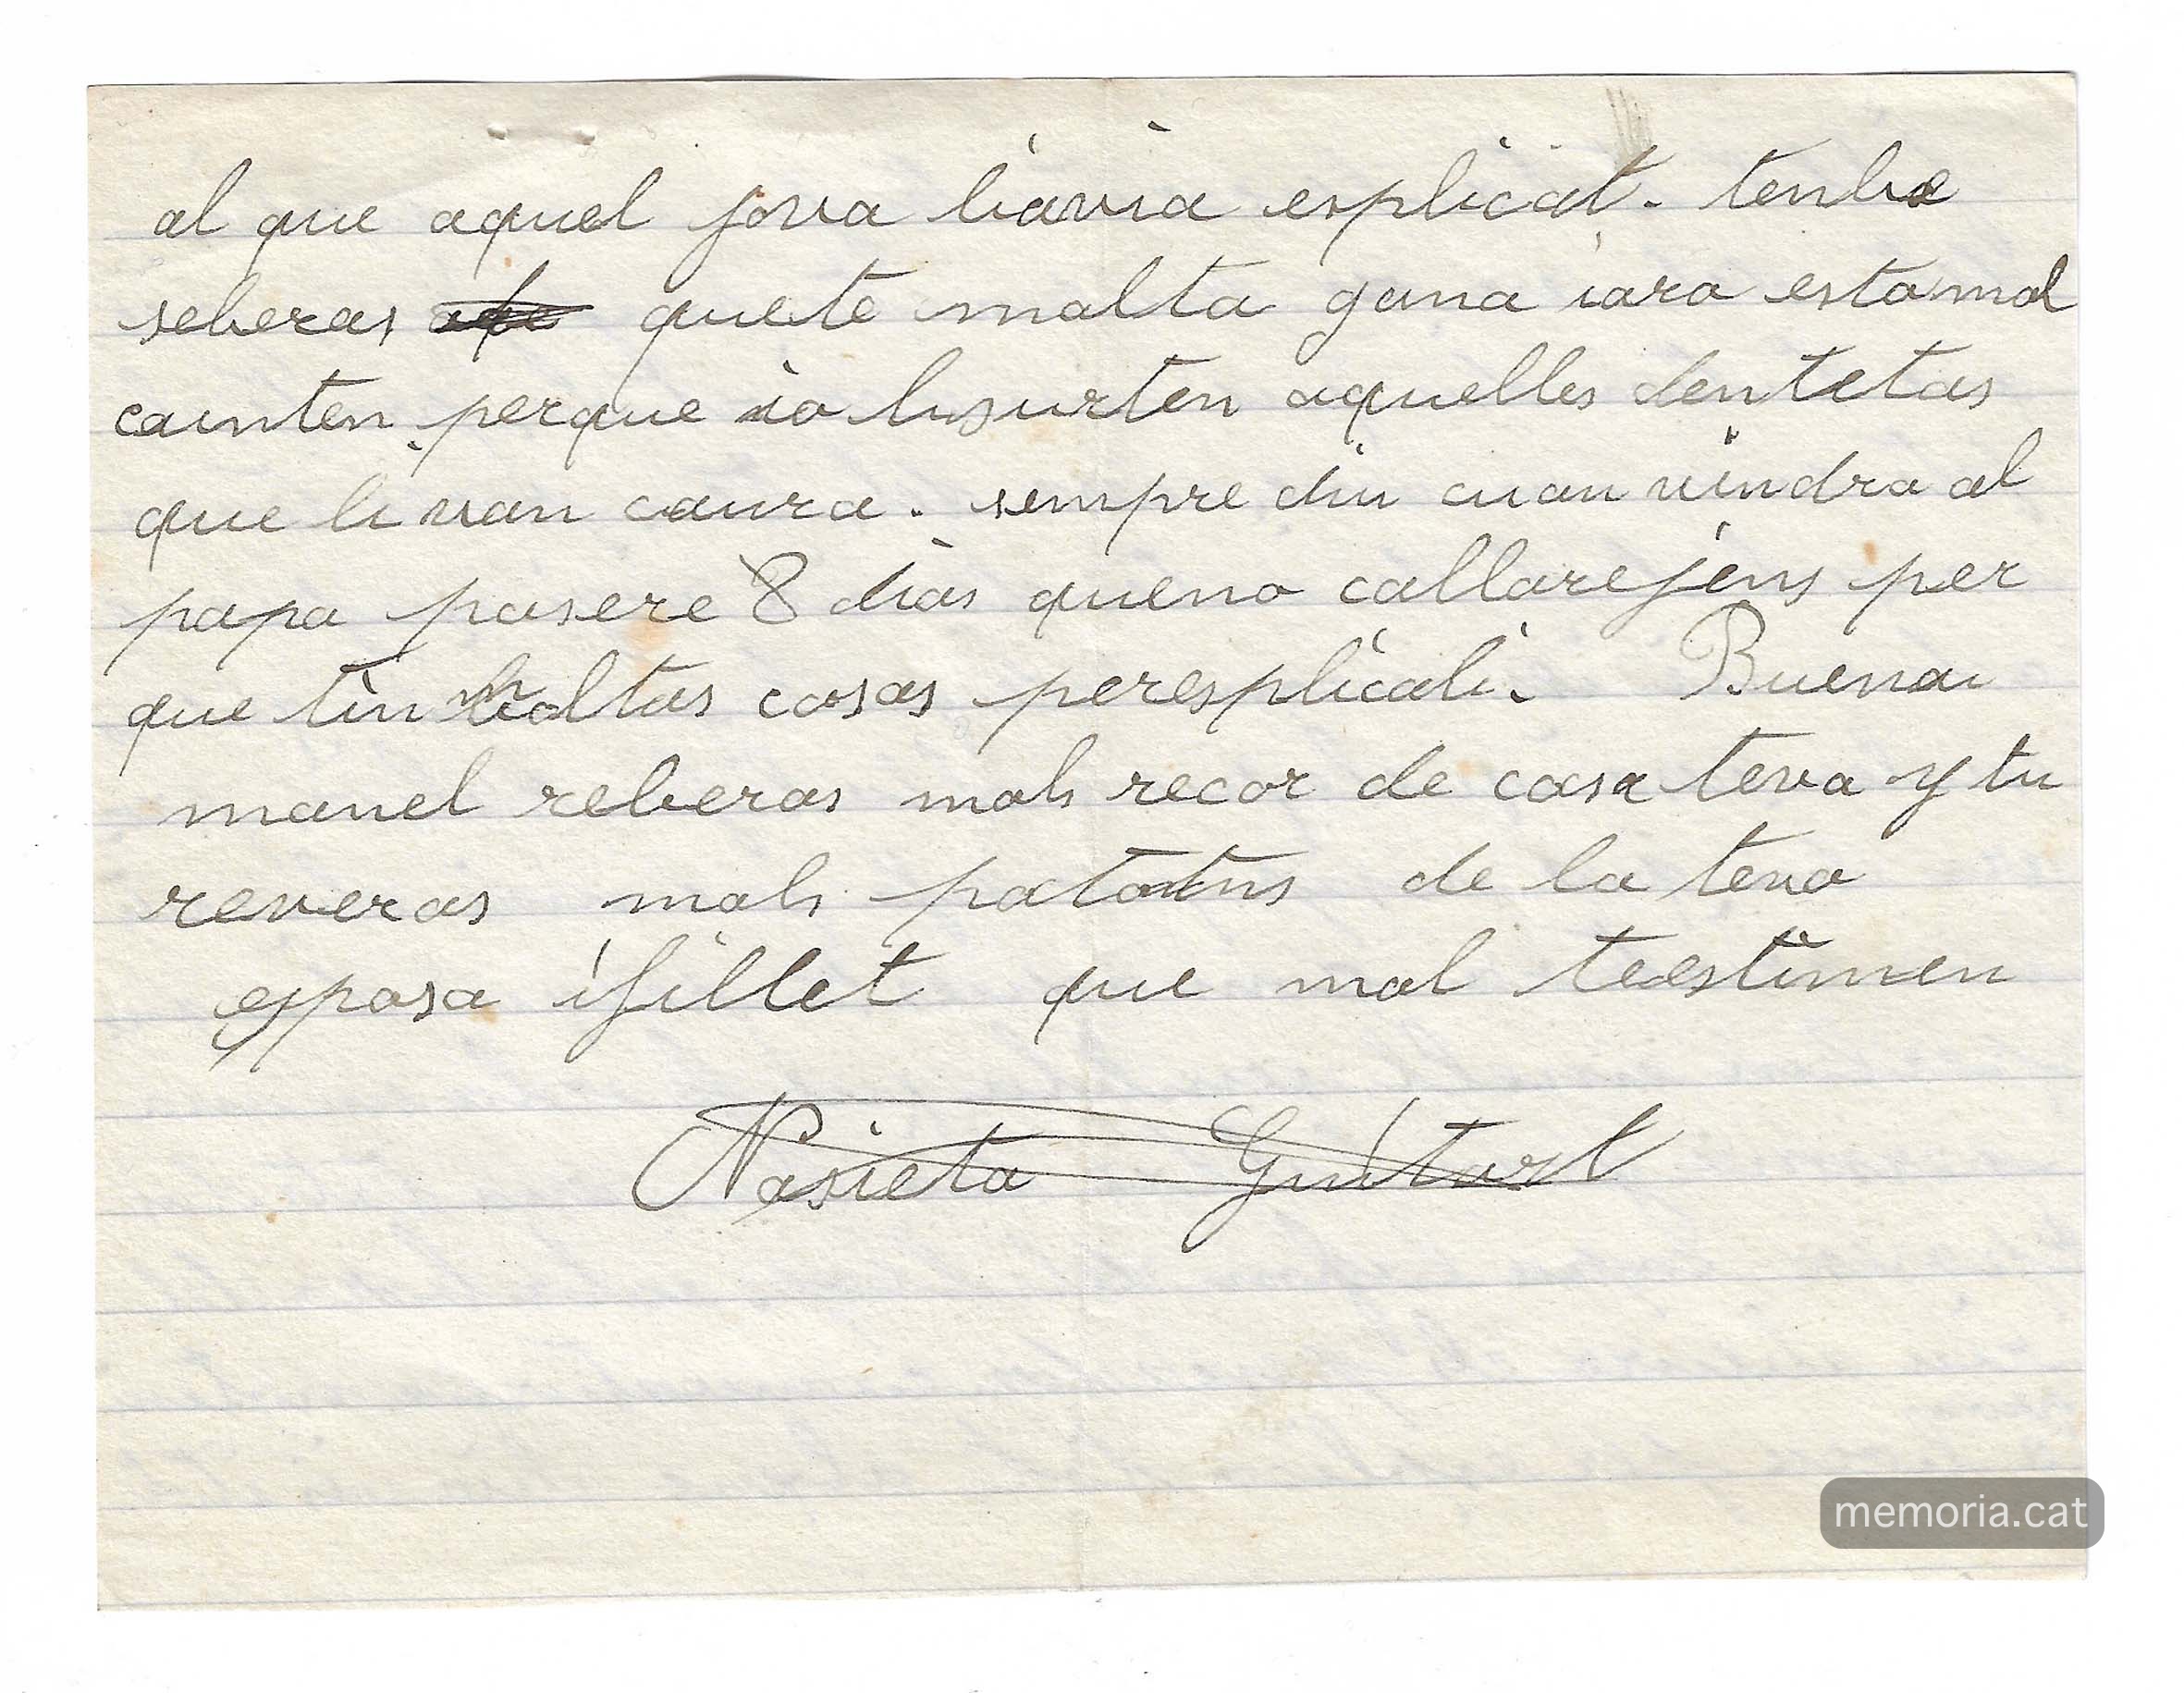 al que aquel jova liavia esplicat. tenbe
seberas quete molta gana iara esta mol
cunten perque ia lisurten aquelles dentetas
que li van caura. sempre diu cuan vindra al
papa pasere 8 dias queno callarejens per
que tin moltas cosas peresplicali. Buenai
manel reberas mols recor de casa teva y tu
reveras mols patotns de la teva
esposa ifillet que mol teestimen
Nasieta Guitart
memoria.cat